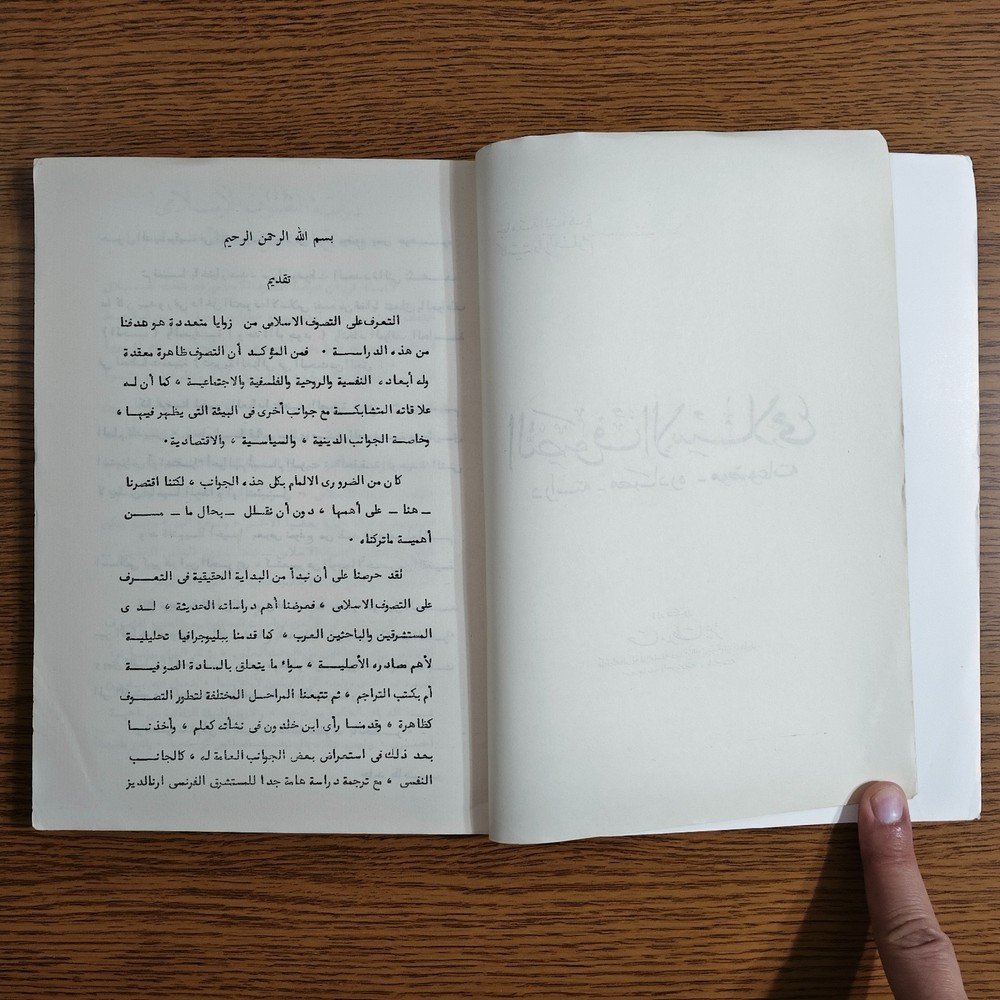 بسم الله الرحمن الرحيم
تقديم
التعرف على التصوف الاسلامى من زوايا متعددة هو هدفنا
من هذه الدراســـة ٠ فمن المؤكـد أن التصوف ظاهرة معقدة
وله أبعاده النفسية والروحية والفلسفية والاجتماعيـة ، كما أن لـه
علاقاته المتشابكـة مع جوانب أخرى فى البيئة التى يظهر فيهـا ،
وخاصـة الجوانب الدينية ، والسياسيـة ، والاقتصادية ٠
كان من الضرورى الالمام بكل هذه الجوانب ، لكننا اقتصرنا
ـ هنا ـ على أهمها ، دون أن نقـلل ـ بحال ما ـ مـــن
أهميـة ماتركناه ٠
لقد حرصنا على أن نبدأ من البداية الحقيقية فى التعـــرف
على التصوف الاسلامى ، فعرضنا أهم دراساته الحديثة ، لـــدى
المستشرقين والباحثين العرب ، كما قدمنا ببليوجرافيا تحليليـة
لأهم مصادره الأصليـــة ، سواء ما يتعلق بالمـادة الصوفيـــة
أم بكتب التراجم ، ثم تتبعنا المراحـل المختلفة لتطور التصـــوف
كظاهرة ، وقدمنـا رأى ابن خلدون فى نشأته كعلم ، وأخذنـــا
بعد ذلك فى استعراض بعض الجوانب العامة له ، كالجانـــب
النفسى ، مع ترجمة دراسة هامة جدا للمستشرق الفرنسى ارنالديز
التصوف الاسلامى
دراسته ـ مصادره ـ موضوعاته